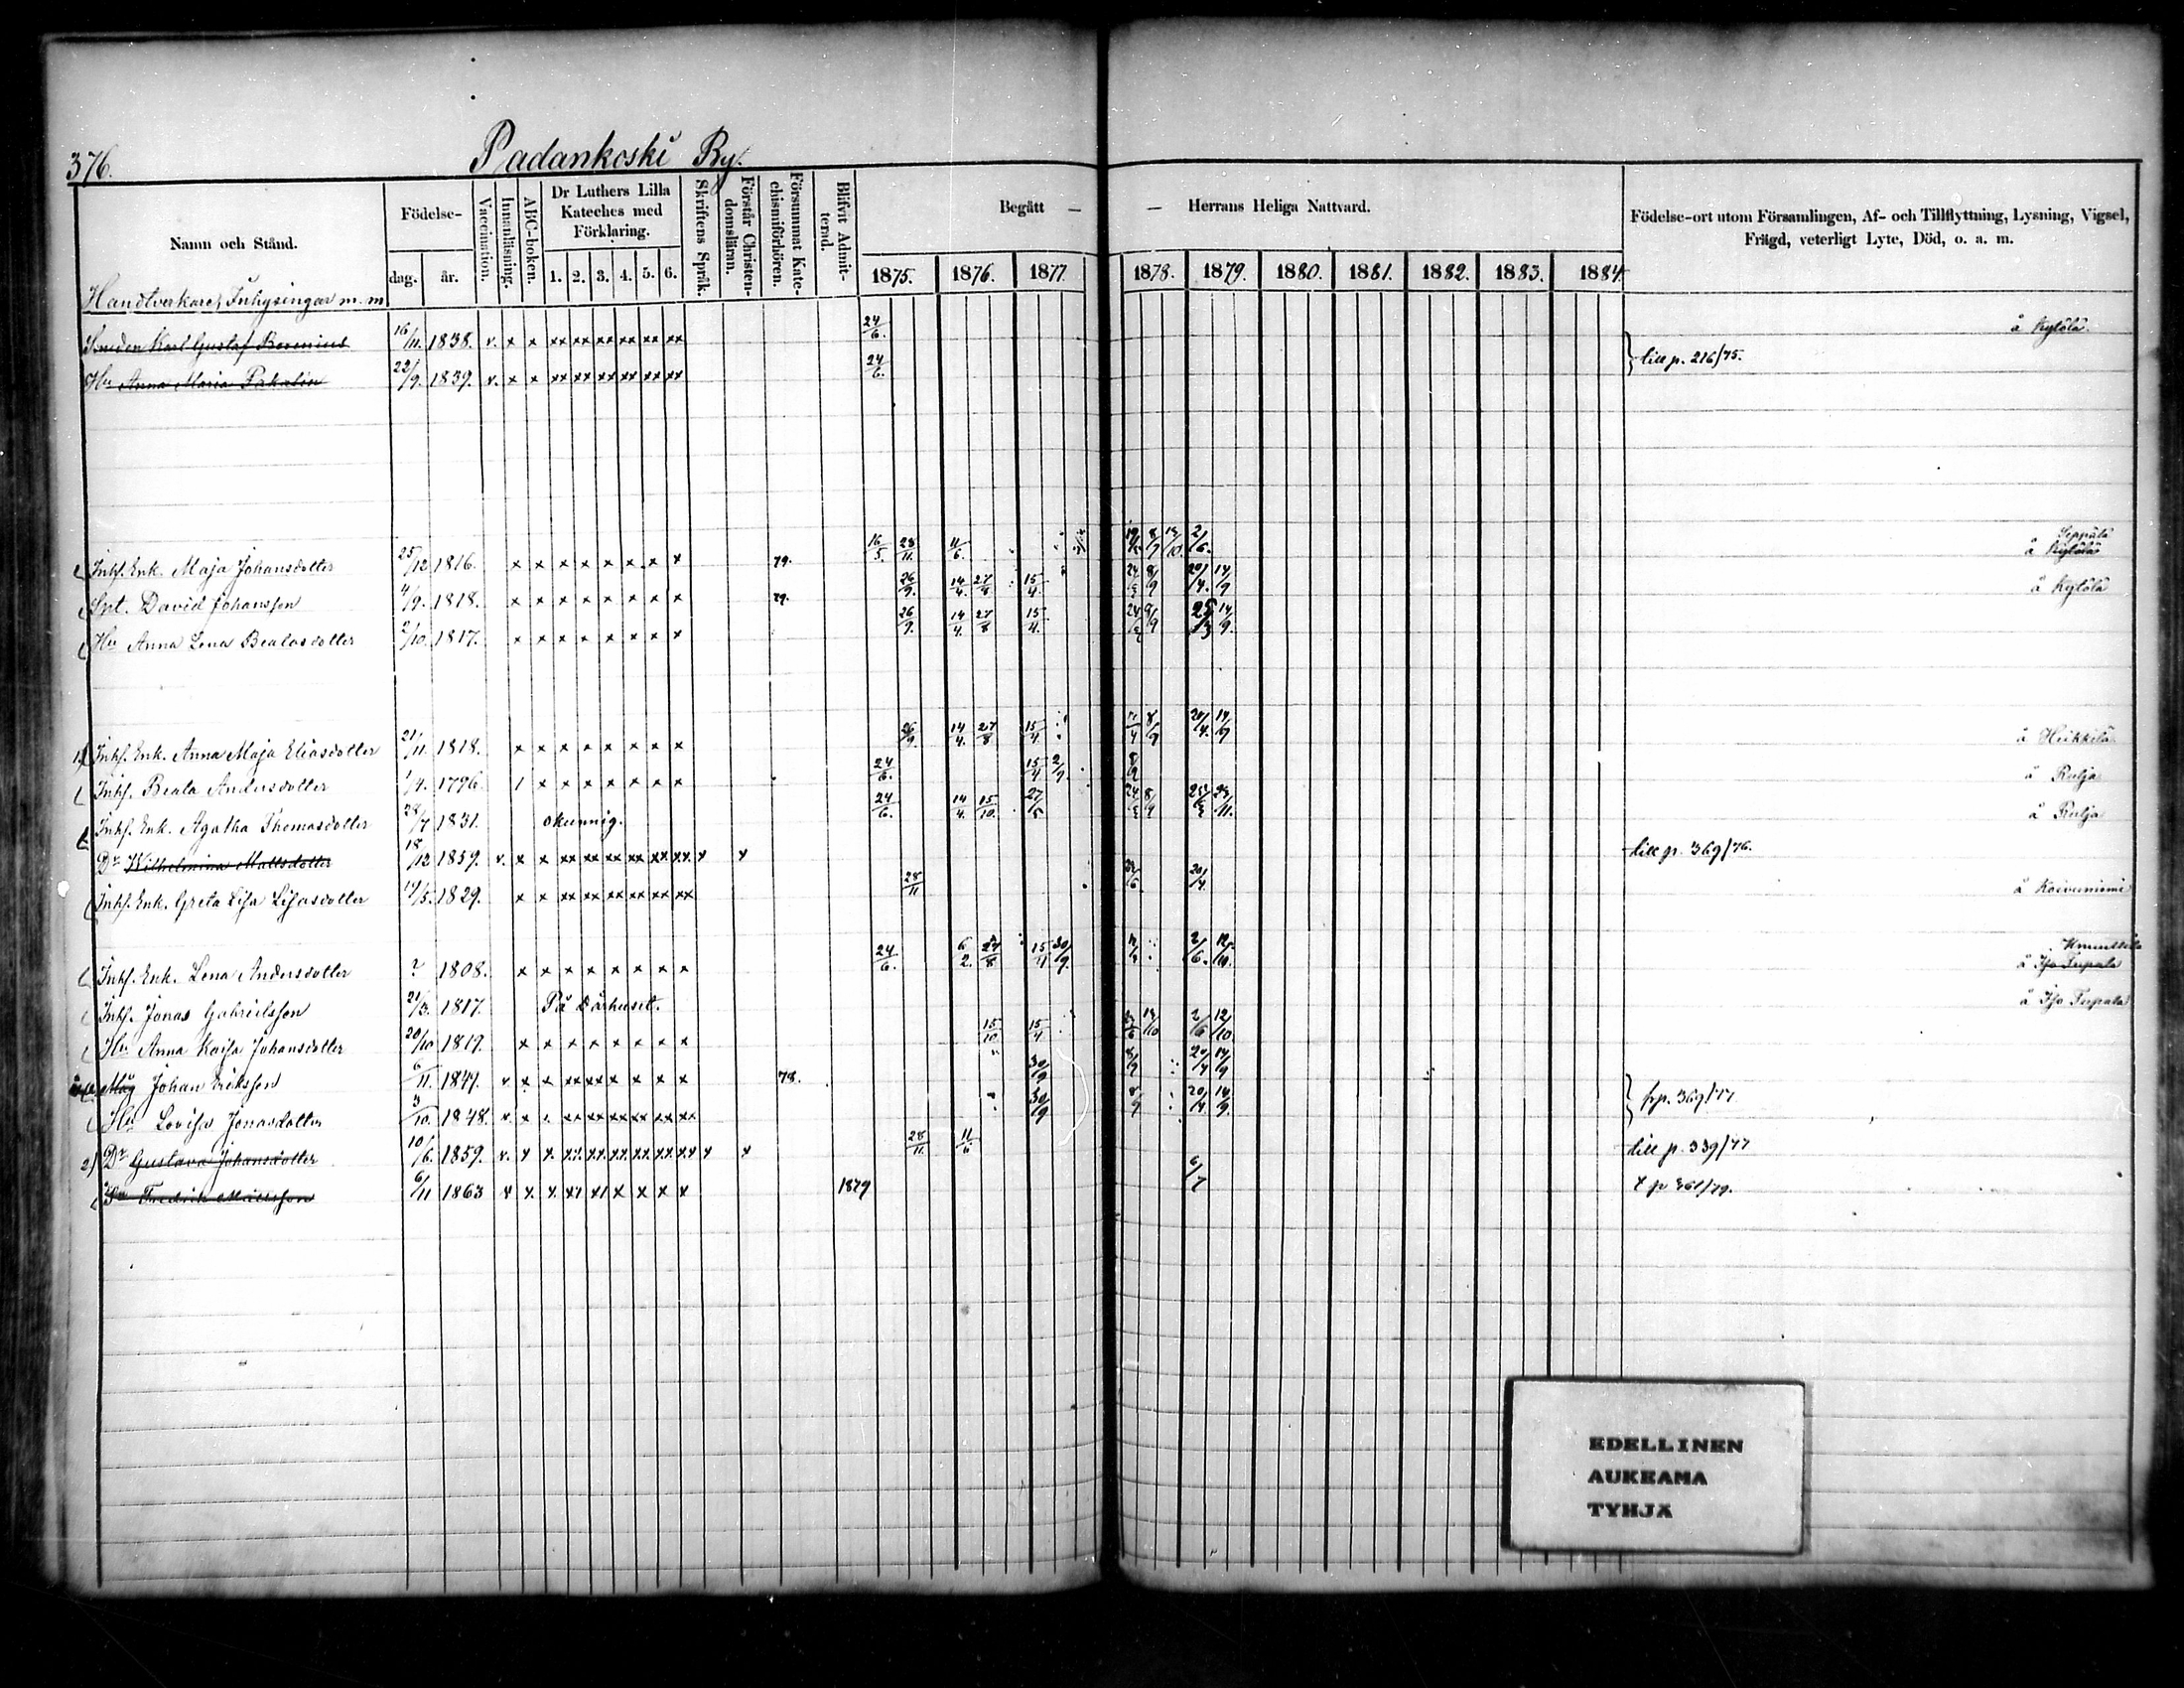 376.
Padankoski By.
Namn och Stånd.
Födelse-
dag.
år.
Vaccination.
Innanläsning.
ABC-boken.
Dr Luthers Lilla
Kateches med
Förklaring.
1. 2. 3. 4. 5. 6.
Skriftens Språk.
Förstår Christen-
domsläran.
Försummat Kate-
chismiförhören.
Blifvit Admit-
terad.
Begått — — Herrans Heliga Nattvard.
1875. 1876. 1877. 1878. 1879. 1880. 1881. 1882. 1883. 1884
Födelse-ort utom Församlingen, Af- och Tillflyttning, Lysning, Vigsel,
Frägd, veterligt Lyte, Död, o. a. m.
Handtverkare, Inhysingar m. m
Smeden Karl Gustaf 16/11. 1838. v. x x xx xx xx xx xx xx 24/6. å Kylölä.
Hu Anna Maria 22/9. 1839. v. x x xx xx xx xx xx xx 24/6. till p. 216/75.
Inhs. Enk. Maja Johansdotter 25/12 1816. x x x x x x x x 79. 16/5. 28/11. 11/6. 2/6. Seppälä å Kylölä
Spt. David Johansson 4/9. 1818. x x x x x x x x 79. 26/9. 14/4. 27/8 15/4. 24/3 8/9 20/4. 14/9 å Kylölä
Hu Anna Lena Beatasdotter 2/10. 1817. x x x x x x x x 26/9. 14/4. 27/8 15/4. 24/3 9/9 25/3 14/9.
Inhs. Enk. Anna Maja Eliasdotter 21/11. 1818. x x x x x x x x 26/9. 14/4. 27/8 15/4. 8/9 20/4. 14/9 å Heikkilä
Inhs. Beata Andersdotter 1/4. 1796. 1 x x x x x x x 24/6. 15/4 2/9. 8/9 å Rulja
Inhs. Enk. Agatha Thomasdotter 28/7 1831. okunnig. 24/6. 14/4. 15/10. 27/5 24/3 8/9 å Rulja
Dr Wilhelmina Mattsdotter 18/12 1859. v. x x xx xx xx xx xx xx x x till p. 369/76.
Inhs. Enk. Greta Lisa Lisasdotter 17/5. 1829. x x xx xx xx xx xx xx 28/11 20/4. å Koivuniemi
Inhs. Enk. Lena Andersdotter ? 1808. x x x x x x x x 24/6. 6/2. 27/8 15/4 30/9. 2/6. å Iso Tupala
Inhs. Jonas Gabrielsson 21/3. 1817. På Dårhuset. å Iso Tupala
Hu Anna Kaisa Johansdotter 20/10 1819. x x x x x x x x 15/10 15/4 13/10 2/6 12/10
Måg Johan Eriksson 6/11. 1847. v x x xx xx x x x x 78. 30/9 8/9 20/4 14/9
Hu Lovisa Jonasdotter 3/10. 1848. v. x x. xx xx xx xx xx xx 30/9 8/9 20/4. 14/9. frp. 369/77
2) Dr Gustava Johansdotter 10/6. 1859. v. x x. xx xx xx xx xx xx x x 28/11. 11/6 till p. 339/77
Fredrik 6/11 1863 v x x xx x x x x 1879 6/7 t p 361/79.
EDELLINEN
AUKEAMA
TYHJÄ